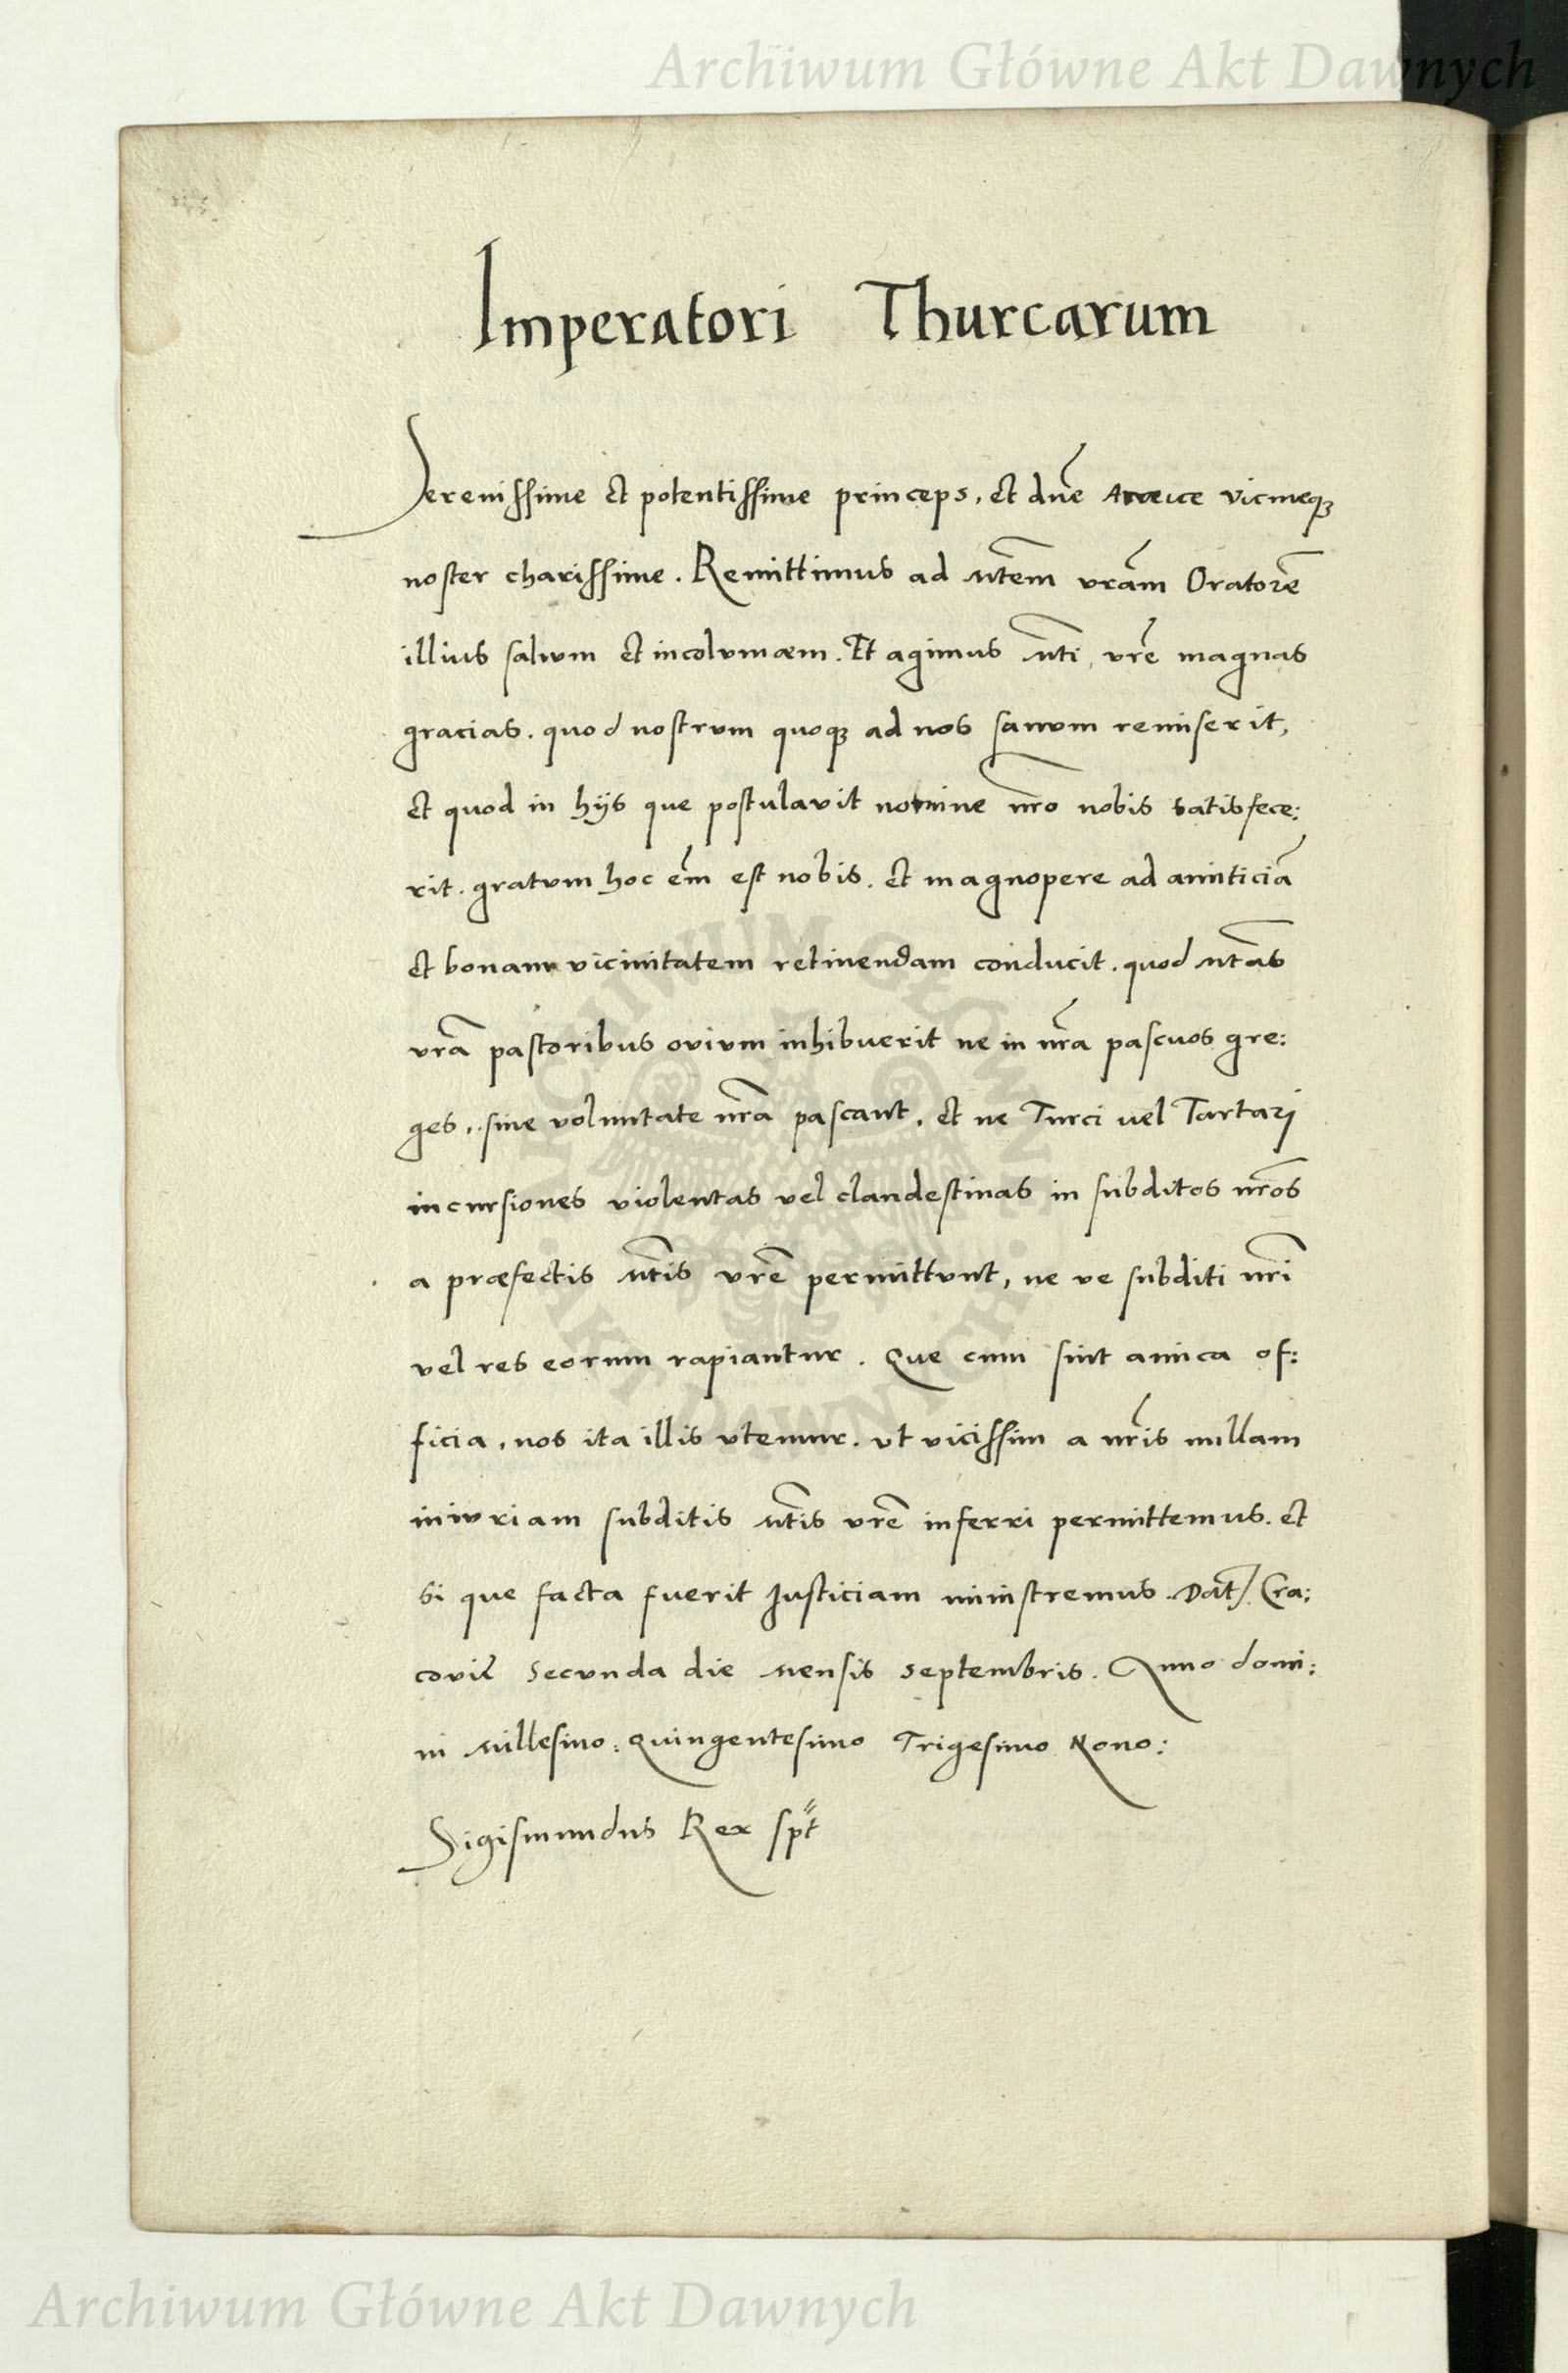 Archiwum Główne Akt Dawnych
Imperatori Thurcarum
Serenissime et potentissime princeps, et dn̄e Amice vicineq₃
noster charissime. Remittimus ad Mt̄em vrām Oratorē
illius salvum et incolvmæm. Et agimus Mt̄i vrē magnas
gracias. quod nostrvm quoq₃ ad nos sanvm remiserit,
et quod in hijs que postulavit nomine nr̄o nobis satisfece:
rit. gratvm hoc em̄ est nobis. et magnopere ad amiticiā
et bonam vicinitatem retinendam conducit. quod Mt̄as
vrā pastoribus ovivm inhibuerit ne in nr̄a pascuos gre:
ges, sine voluntate nr̄a pascant, et ne Turci vel Tartari
incursiones violentas vel clandestinas in subditos nr̄os
a præfectis Mt̄is vrē permittvnt, ne ve subditi nr̄i
vel res eorum rapiantur. Que cum sint amica of:
ficia, nos ita illis vtemur. vt vicissim a nr̄is nullam
inivriam subditis Mt̄is vrē inferri permittemus. et
si que facta fuerit Justiciam ministremus. Dat̄ Cra:
coviē Secvnda die Mensis Septembris. Anno domi:
ni Millesimo: Quingentesimo Trigesimo Nono:
Sigismundus Rex sp̄t
ARCHIWUM GŁÓWNE
AKT DAWNYCH
Archiwum Główne Akt Dawnych